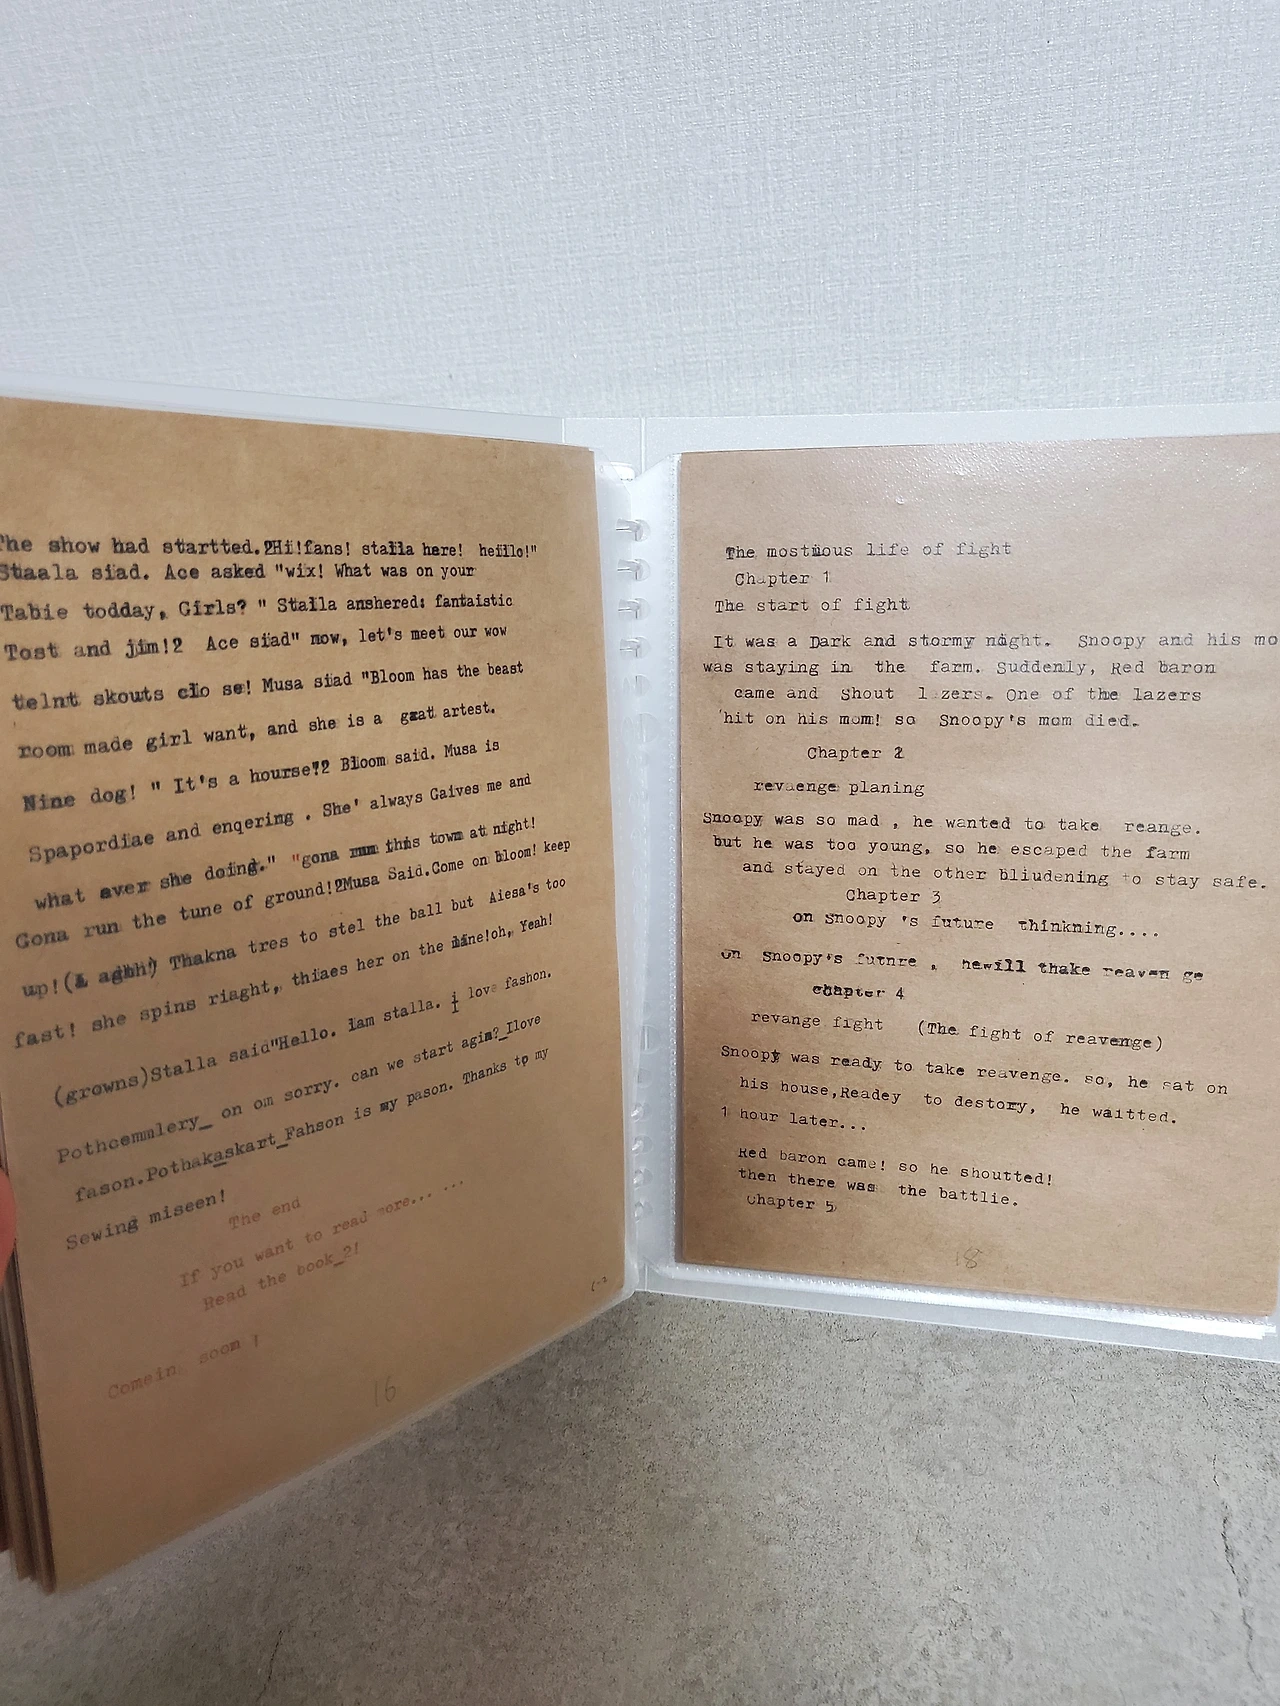 The show had startted.2Hi!fans! stalla here! heillo!"
Staala siad. Ace asked "wix! What was on your
Tabie todday, Girls? " Stalla anshered: fantaistic
Tost and jim!2 Ace siad" now, let's meet our wow
telnt skouts clo se! Musa siad "Bloom has the beast
room made girl want, and she is a gxat artest.
Nine dog! " It's a hourse?2 Bloom said. Musa is
Spapordiae and enqering . She' always Gaives me and
what aver she doing." "gona this town at night!
Gona run the tune of ground!2Musa Said.Come on bloom! keep
up!( Thakna tres to stel the ball but Aiesa's too
fast! she spins riaght, thiaes her on the line!oh, Yeah!
(growns)Stalla said"Hello. iam stalla. i love fashon.
Pothcemmlery_ on om sorry. can we start agin?_Ilove
fason.Pothakaskart_Fahson is my pason. Thanks to my
Sewing miseen!
The end
If you want to read more... ...
Read the book_2!
Comein soom !
16
The mostious life of fight
Chapter 1
The start of fight
It was a Dark and stormy night. Snoopy and his mo
was staying in the farm. Suddenly, Red baron
came and Shout l zers. One of the lazers
hit on his mom! so Snoopy's mom died.
Chapter 2
revaenge planing
Snoopy was so mad , he wanted to take reange.
but he was too young, so he escaped the farm
and stayed on the other bliudening to stay safe.
Chapter 3
on Snoopy 's future thinkning....
on Snoopy's futnre , hewill thake reaven ge
chapter 4
revange fight (The fight of reavenge)
Snoopy was ready to take reavenge. so, he sat on
his house,Readey to destory, he waitted.
1 hour later...
Red baron came! so he shoutted!
then there was the battlie.
Chapter 5
18